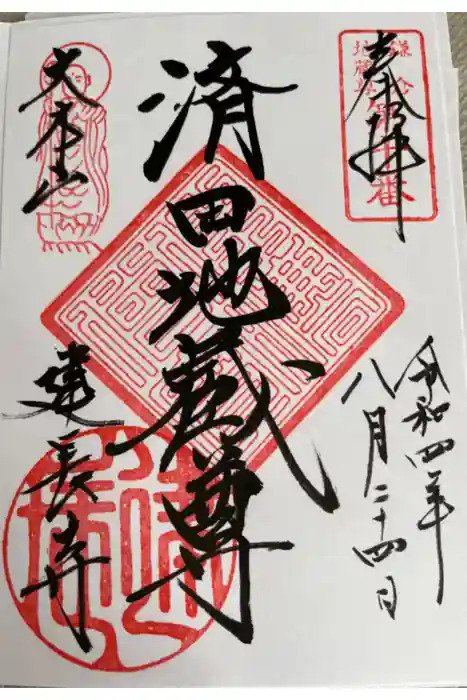 奉拝
鎌倉
地蔵尊
第十番
令和四年
八月二十四日
済田地蔵尊
大本山
建長寺